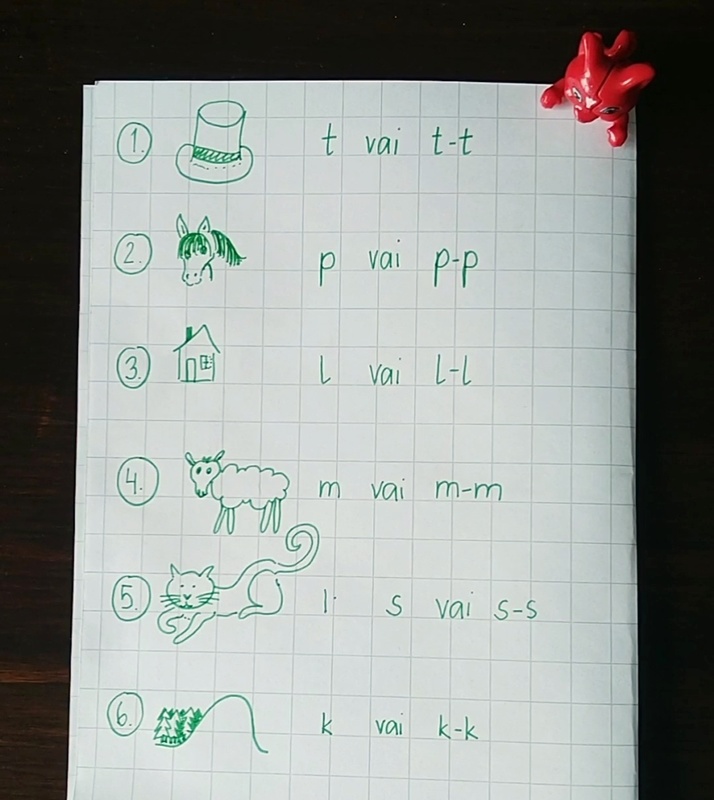 1. t vai t-t
2. p vai p-p
3. l vai l-l
4. m vai m-m
5. s vai s-s
6. k vai k-k